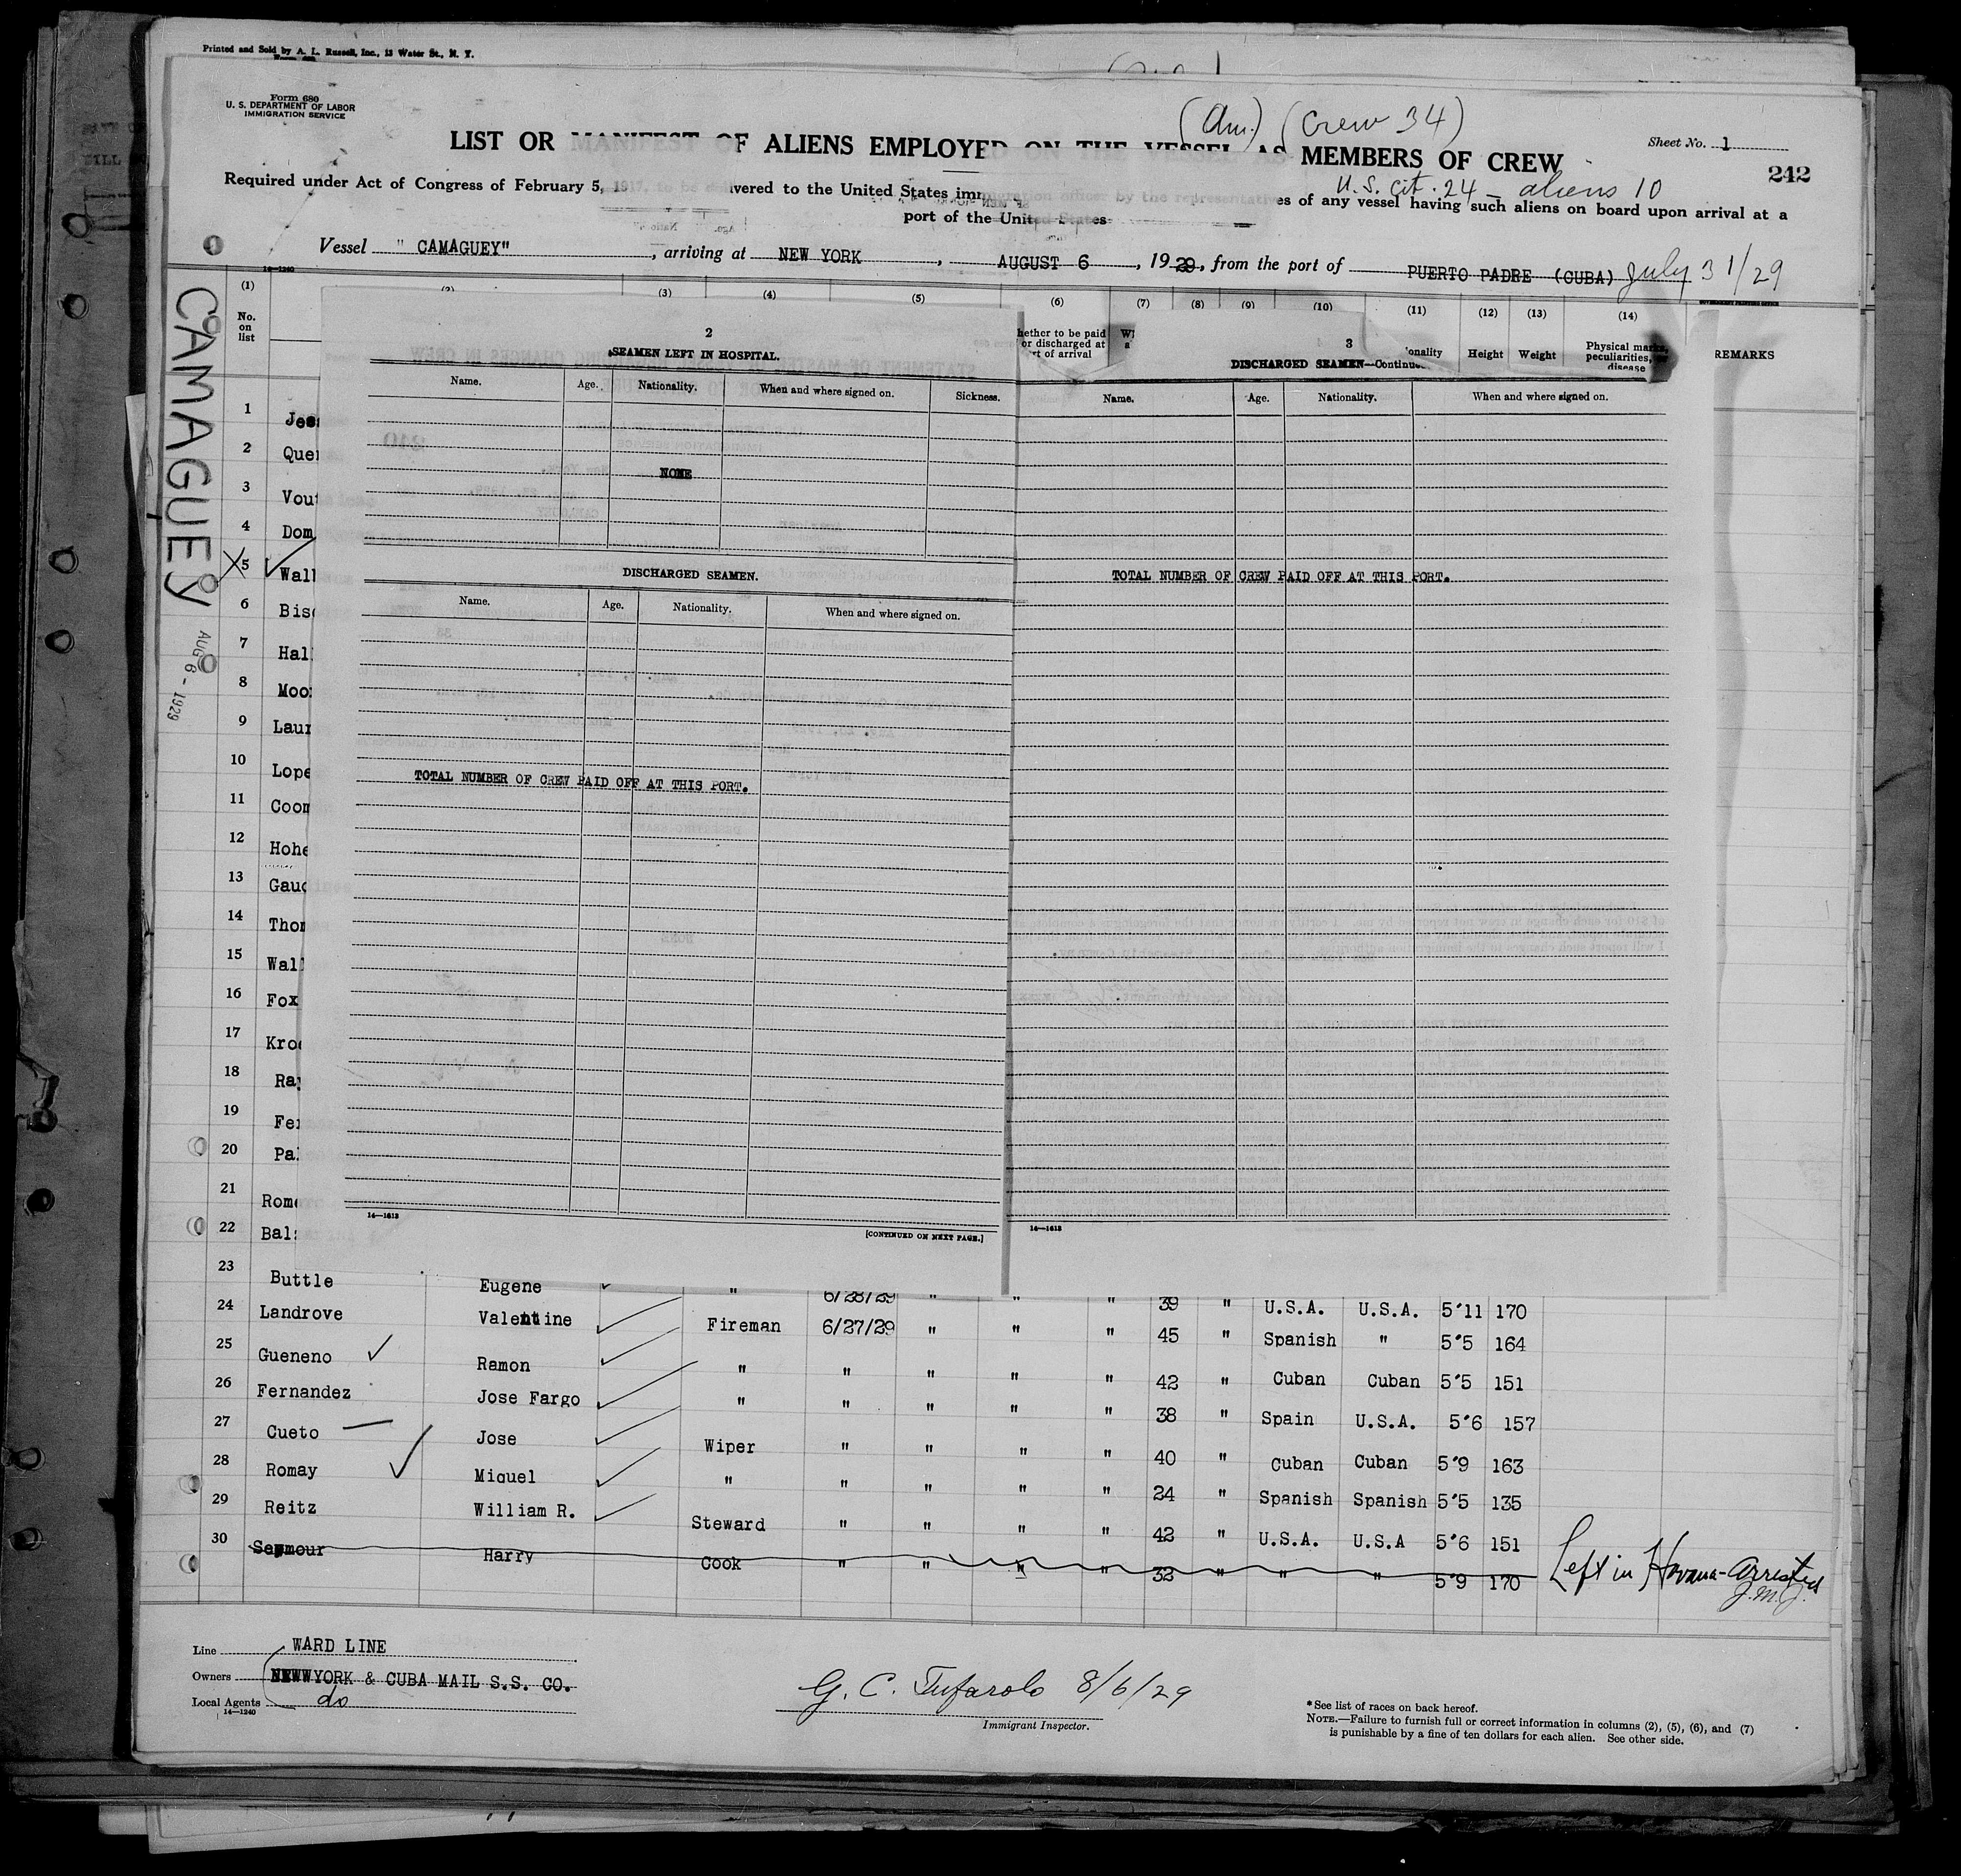 Printed and Sold by A. L. Russell, Inc., 13 Water St., N. Y.
Form 680
U. S. DEPARTMENT OF LABOR
IMMIGRATION SERVICE
(Am.) (Crew 34)
LIST OR MANIFEST OF ALIENS EMPLOYED ON THE VESSEL AS MEMBERS OF CREW
Sheet No. 1
242
U.S. Cit. 24 - aliens 10
Required under Act of Congress of February 5, 1917, to be delivered to the United States immigration officer by the representatives of any vessel having such aliens on board upon arrival at a
port of the United States
Vessel " CAMAGUEY" , arriving at NEW YORK , AUGUST 6 , 1929, from the port of PUERTO PADRE (CUBA) July 31/29
14-1240
(1) (2) (3) (4) (5) (6) (7) (8) (9) (10) (11) (12) (13) (14)
No. on list
hether to be paid
or discharged at
rt of arrival
onality
Height
Weight
Physical marks, peculiarities,
disease
REMARKS
CAMAGUEY
AUG 6 - 1929
2
SEAMEN LEFT IN HOSPITAL.
Name. Age. Nationality. When and where signed on. Sickness.
NONE
DISCHARGED SEAMEN.
Name. Age. Nationality. When and where signed on.
TOTAL NUMBER OF CREW PAID OFF AT THIS PORT.
14-1613
[CONTINUED ON NEXT PAGE.]
3
DISCHARGED SEAMEN—Continued
Name. Age. Nationality. When and where signed on.
TOTAL NUMBER OF CREW PAID OFF AT THIS PORT.
14-1613
1 Jes
2 Que
3 Vou
4 Dom
5 Wall
6 Bis
7 Hal
8 Moo
9 Laur
10 Lope
11 Coon
12 Hohe
13 Gauc
14 Thor
15 Wal
16 Fox
17 Kro
18 Ra
19 Fe
20 Pa
21 Rome
22 Bal
23 Buttle Eugene " 6/28/29 " " " 39 " U.S.A. U.S.A. 5'11 170
24 Landrove Valentine Fireman 6/27/29 " " " 45 " Spanish " 5'5 164
25 Gueneno Ramon " " " " " 42 " Cuban Cuban 5'5 151
26 Fernandez Jose Fargo " " " " " 38 " Spain U.S.A. 5'6 157
27 Cueto Jose Wiper " " " " 40 " Cuban Cuban 5'9 163
28 Romay Miguel " " " " " 24 " Spanish Spanish 5'5 135
29 Reitz William R. Steward " " " " 42 " U.S.A. U.S.A 5'6 151
30 Seymour Harry Cook " " " " 32 " " " 5'9 170 Left in Havana-Arrested
J.M.J.
Line WARD LINE
Owners NEW YORK & CUBA MAIL S.S. CO.
Local Agents do
14-1240
G. C. Tufarolo 8/6/29
Immigrant Inspector.
*See list of races on back hereof.
NOTE.—Failure to furnish full or correct information in columns (2), (5), (6), and (7)
is punishable by a fine of ten dollars for each alien. See other side.